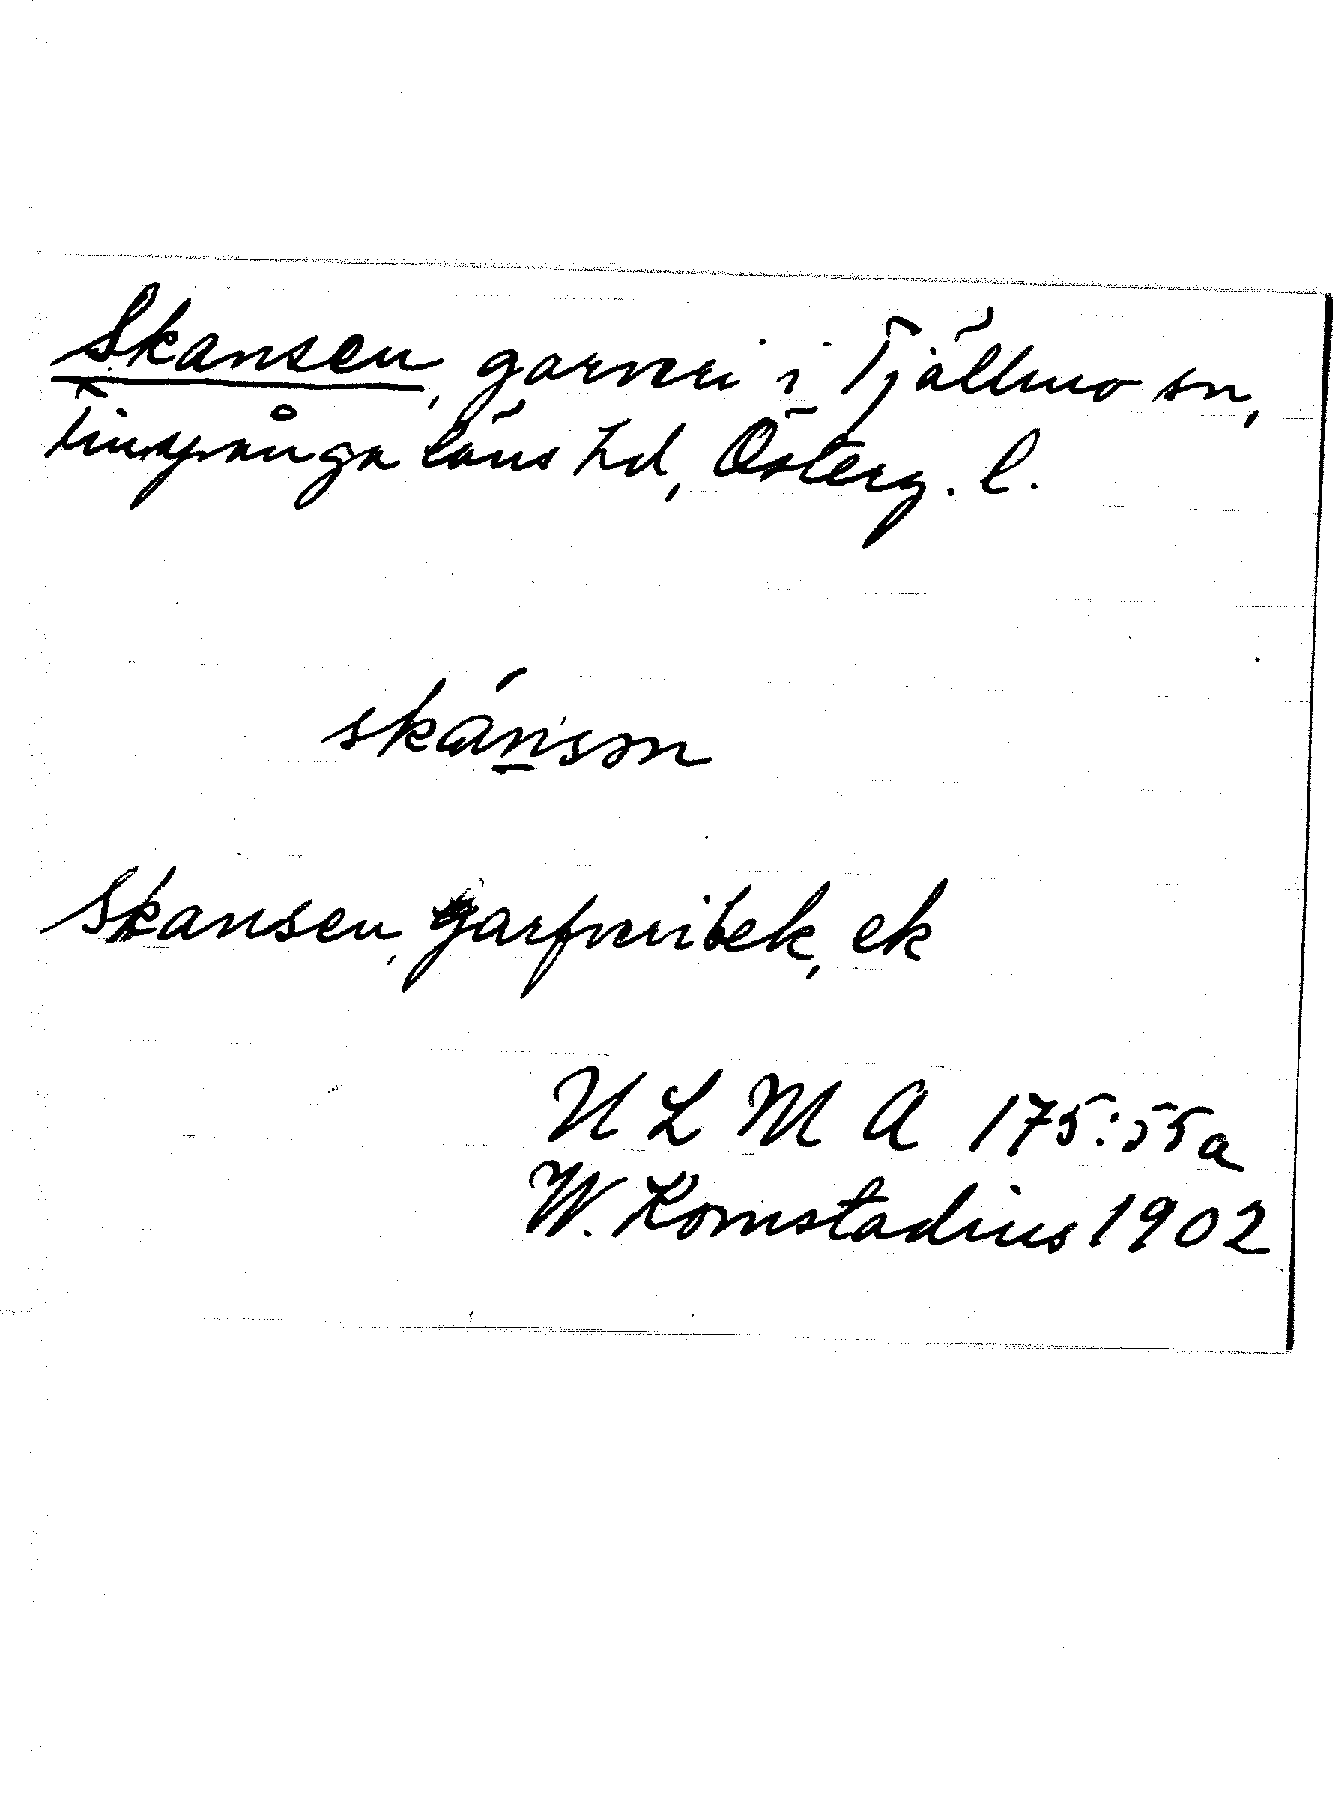 Skansen, garveri i Tjällmo sn,
Finspånga läns hd, Österg. l.
skánsən
Skansen, garfveribek, ek
ULMA 175:55a
W. Komstadius 1902